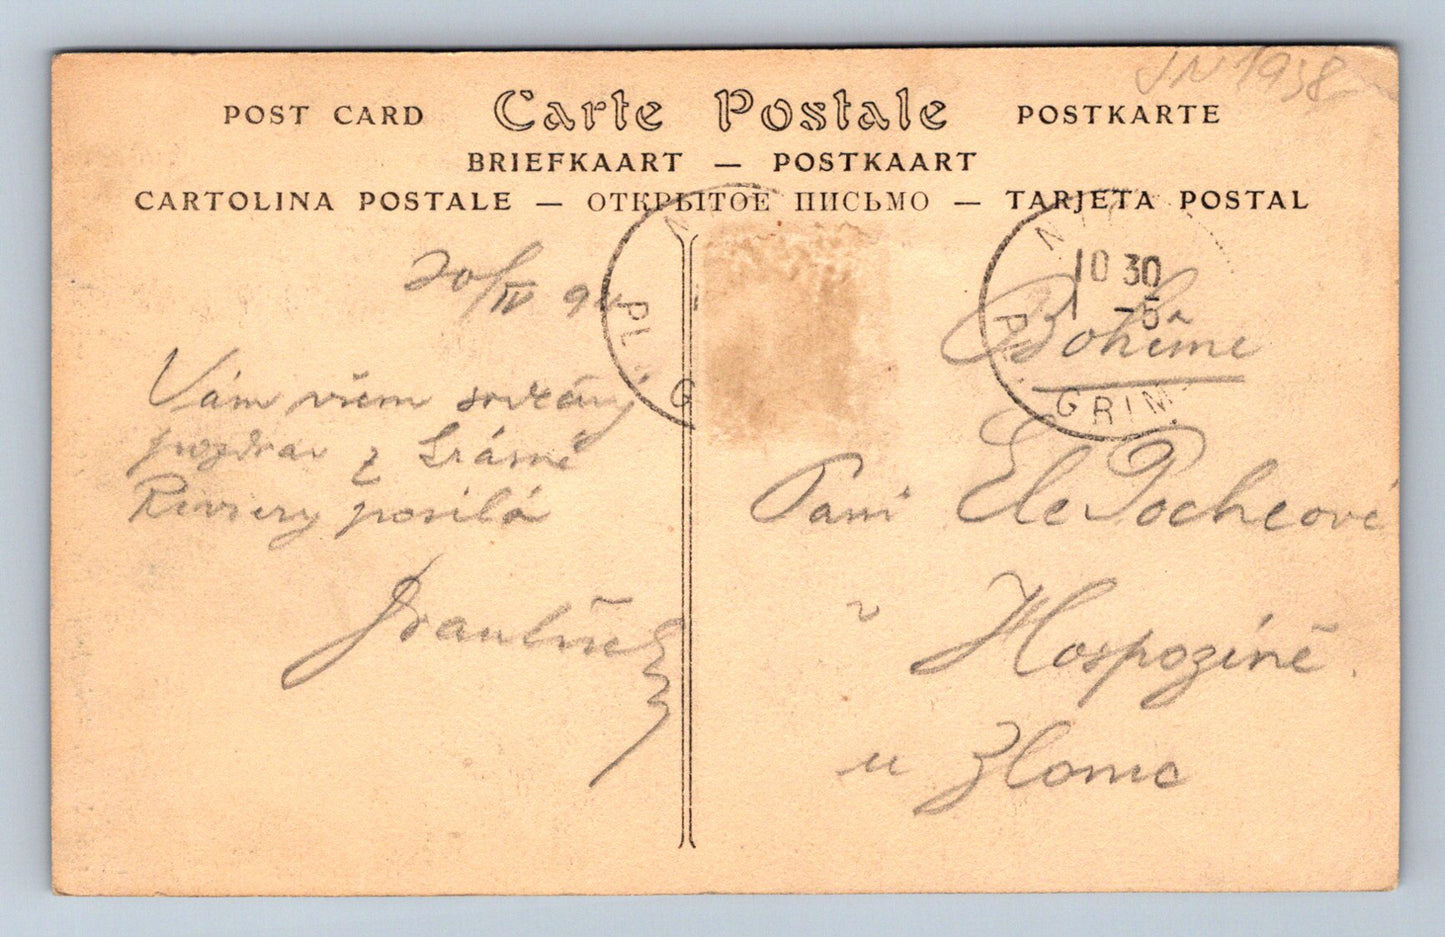 JN 1938
POST CARD Carte Postale POSTKARTE
BRIEFKAART — POSTKAART
CARTOLINA POSTALE — ОТКРЫТОЕ ПИСЬМО — TARJETA POSTAL
20/IV
Vám všem srdečný
pozdrav z krásné
Reviery posílá
PL. G
10 30
1 -5
PL. GRIM
Bohême
Paní Ele Pocheové
v Hospozíně
u Zlonic